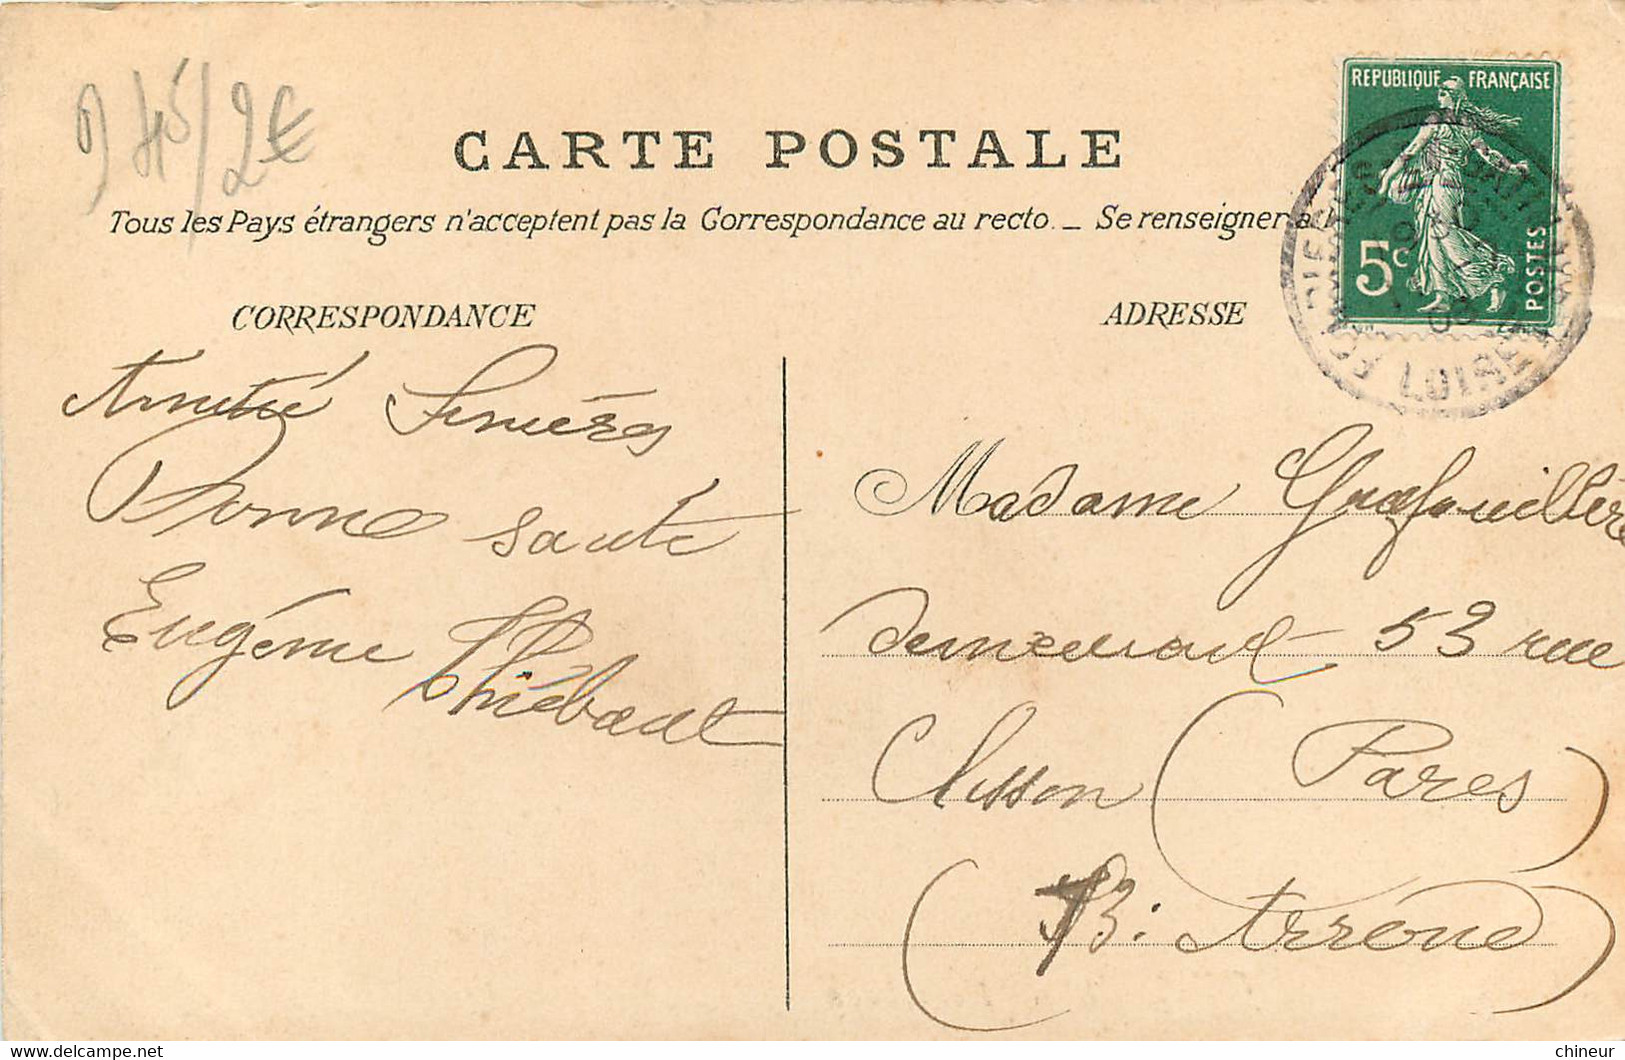 45/2€
CARTE POSTALE
Tous les Pays étrangers n'acceptent pas la Correspondance au recto. _ Se renseigner a
REPUBLIQUE FRANÇAISE
5c
POSTES
LOIRE
CORRESPONDANCE
ADRESSE
Amitié
Bonne santé
Eugénie Thiébaut
Madame
demeurant 53 rue
Clisson (Pares)
(13: Arrond)
chineur